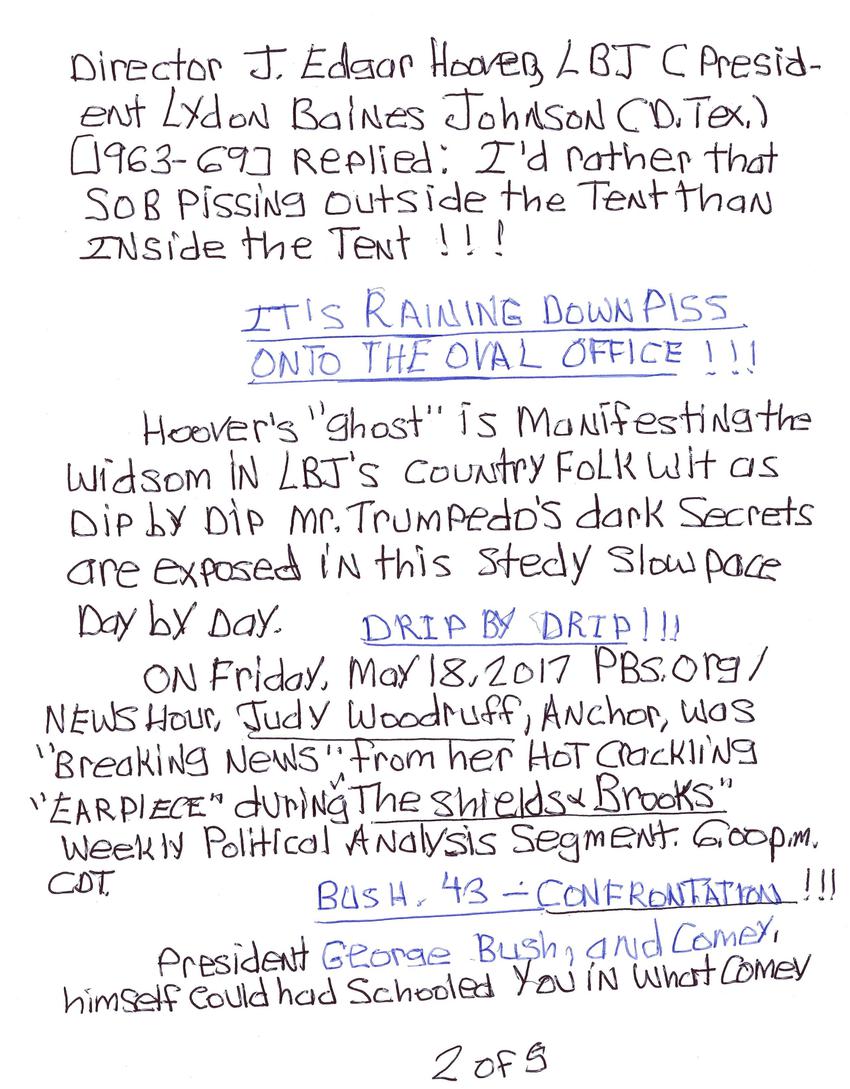 Director J. Edgar Hoover, LBJ C Presid-
ent Lydon Baines Johnson (D.Tex.)
[1963-69] Replied: I'd rather that
SOB Pissing outside the Tent than
INside the Tent !!!
IT'S RAINING DOWN PISS
ONTO THE OVAL OFFICE !!!
Hoover's "ghost" is Manifesting the
Widsom IN LBJ's Country Folk Wit as
Dip by Dip Mr. Trumpedo's dark Secrets
are exposed iN this stedy Slow pace
Day by Day. DRIP BY DRIP!!!
ON Friday, May 18, 2017 PBS.org/
NEWS Hour, Judy Woodruff, Anchor, was
"Breaking News" from her Hot Crackling
"EARPIECE" during "The Shields & Brooks"
Weekly Political Analysis Segment. 6:00p.m.
CDT.
BUSH. 43 - CONFRONTATION !!!
President George Bush, and Comey,
himself Could had Schooled You iN What Comey
2 of 5